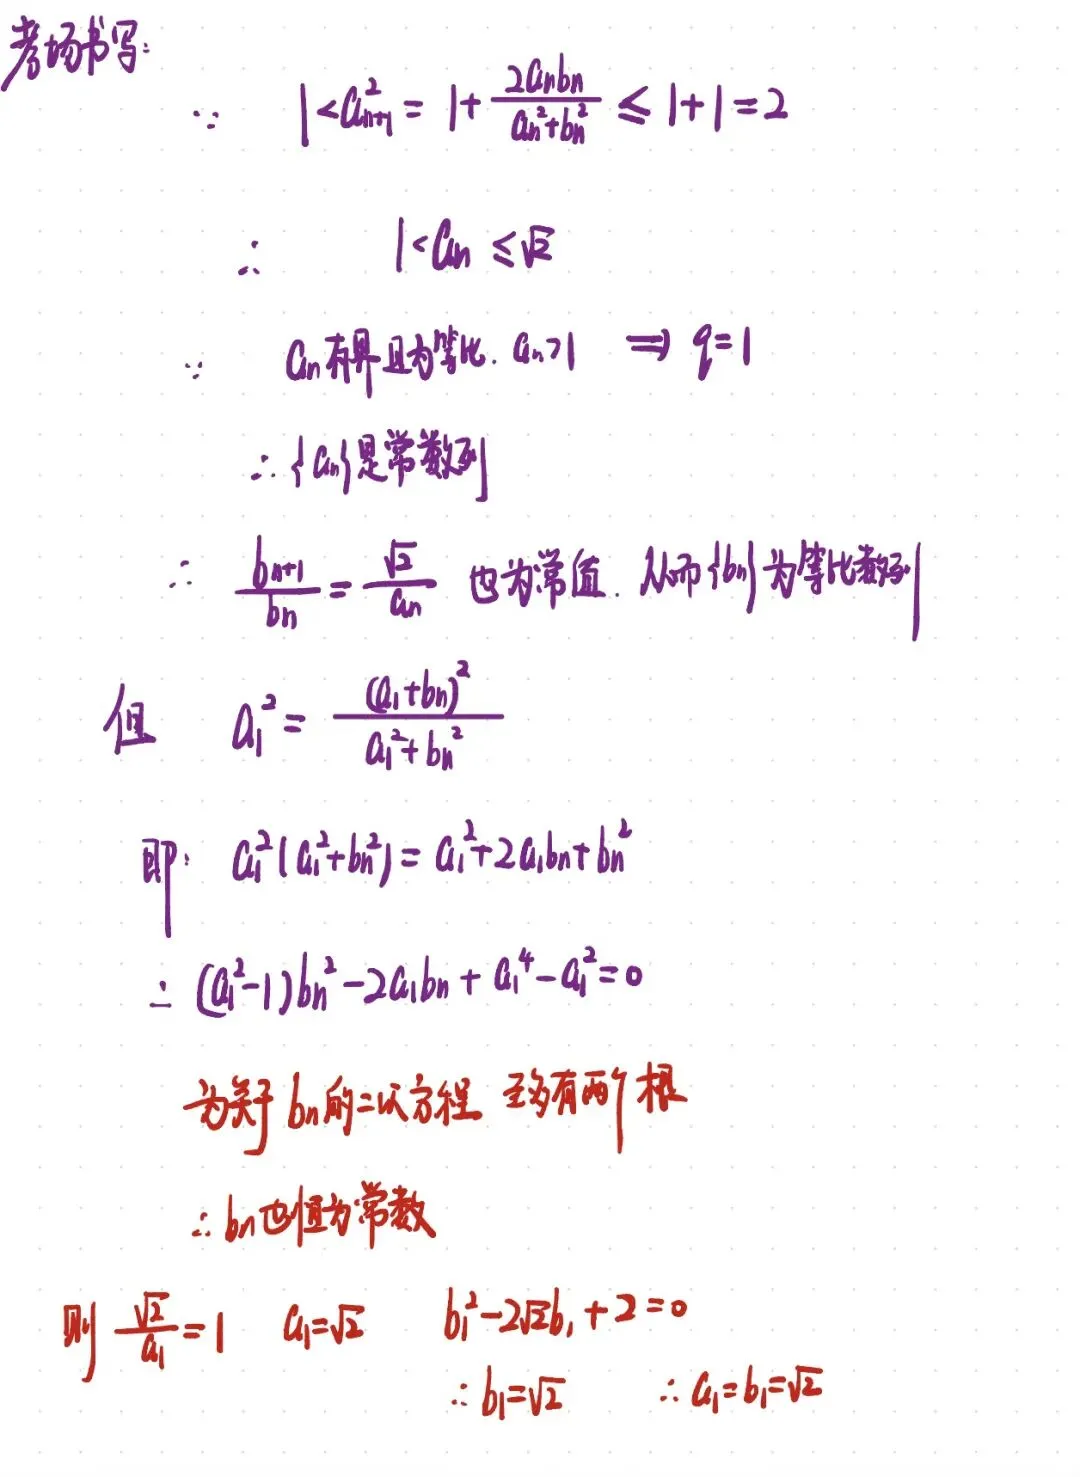 考场书写:
∵ 1<a_{n+1}^2 = 1+\frac{2a_nb_n}{a_n^2+b_n^2} ≤ 1+1=2
∴ 1<a_n ≤√2
∵ a_n有界且为等比. a_n>1 ⇒ q=1
∴{a_n}是常数列
∴ \frac{b_{n+1}}{b_n} = \frac{√2}{a_n} 也为常值. 从而{b_n}为等比数列
但 a_1^2 = \frac{(a_1+b_n)^2}{a_1^2+b_n^2}
即: a_1^2(a_1^2+b_n^2)=a_1^2+2a_1b_n+b_n^2
∴ (a_1^2-1)b_n^2-2a_1b_n+a_1^4-a_1^2=0
为关于b_n的二次方程 至多有两个根
∴b_n也恒为常数
则 \frac{√2}{a_1}=1 a_1=√2 b_1^2-2√2b_1+2=0
∴b_1=√2 ∴a_1=b_1=√2